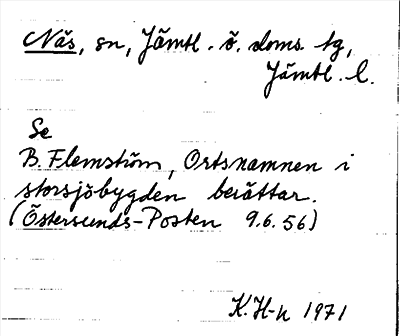 Näs, sn, Jämtl. ö. doms. tg,
Jämtl. l.
Se
B. Flemström, Ortsnamnen i
storsjöbygden berättar.
(Östersunds-Posten 9.6.56)
K.H-n 1971